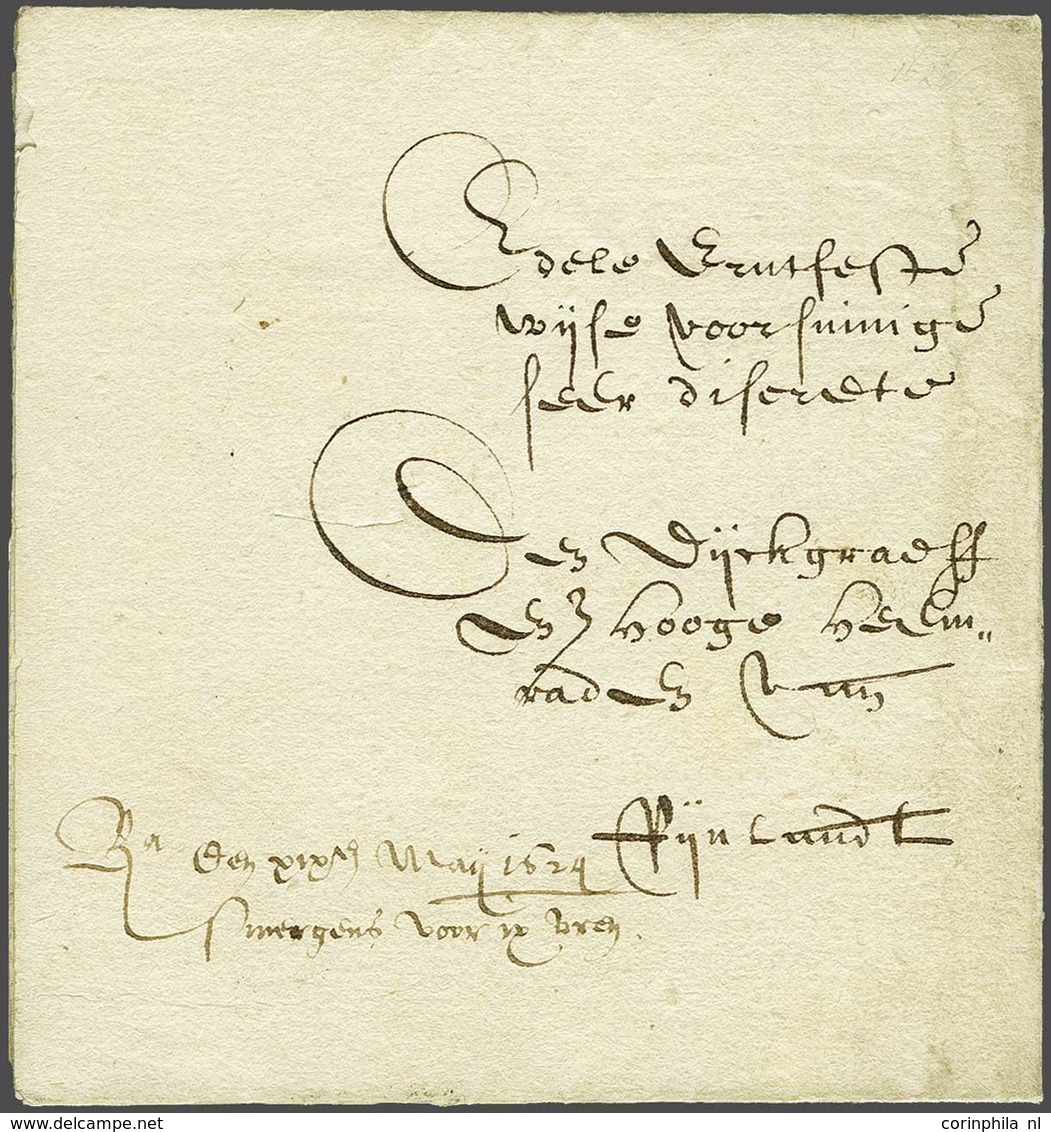 Edele Erntfeste
wijse voorsinnige
seer discrete
Den Dijckgraeff
en Hooge Heem"
raden van
Rijnlandt
Ra den xixen Maij 1624
smergens voor ix uren
www.delcampe.net
corinphila nl